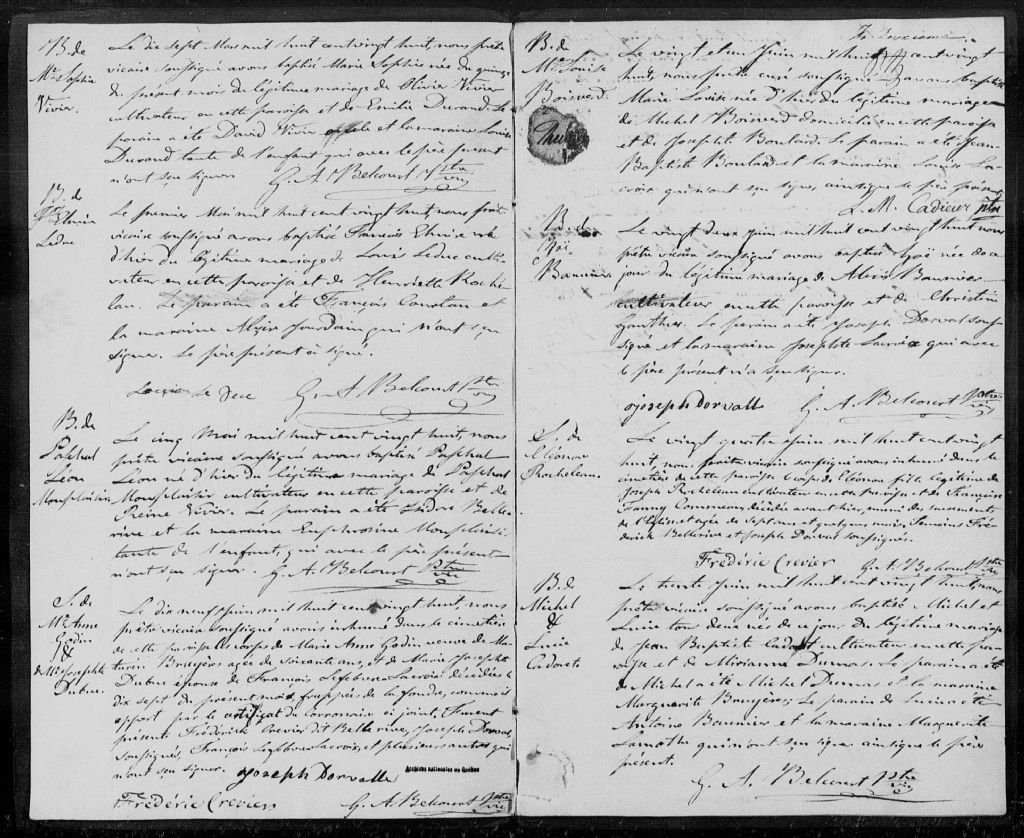 B. de
Mie Sophie
Vivier
Le dix sept Mai mil huit cent vingt huit, nous prêtre
vicaire soussigné avons baptisé Marie Sophie née de quinze
du présent mois du légitime mariage de Olivier Vivier
cultivateur en cette paroisse et de Emilie Durand. Le
parain a été David Vivier oncle et la maraine Louise
Durand tante de l'enfant qui avec le père présent
n'ont su signer. G. A. Belcourt Ptre
vic
B. de
Elmire
Leduc
Le premier Mai mil huit cent vingt huit, nous prêtre
vicaire soussigné avons baptisé François né
d'hier du légitime mariage de Louis Leduc culti-
vateur en cette paroisse et de Henriette Roche-
leau. Le parain a été François et
la maraine Jourdain qui n'ont su
signer. Le père présent à signé.
Louis Le Duc G. A. Belcourt Ptre
vic
B. de
Paschal
Léon
Monplaisir
Le cinq Mai mil huit cent vingt huit, nous
prêtre vicaire soussigné avons baptisé Paschal
Léon né d'hier du légitime mariage de Paschal
Monplaisir cultivateur en cette paroisse et de
Reine Vivier. Le parain a été Isidore Belle-
rive et la maraine Euphrosine Monplaisir
tante de l'enfant, qui avec le père présent
n'ont su signer. G. A. Belcourt Ptre
vic
S. de
Mie Anne
Godin
&
de Mie Josephte
Dubuc
Le dix neuf Juin mil huit cent vingt huit, nous
prêtre vicaire soussigné avons inhumé dans le cimetière
de cette paroisse les corps de Marie Anne Godin veuve de Ma-
turin Brugères agée de soixante ans, et de Marie Josephte
Dubuc épouse de François Lefebvre Lacroix décédées le
dix sept du présent mois, frappées de la foudre, comme il
appert par le certificat du Corronaire ci joint. Furent
présent Fréderick Crevier dit Bellerive, Joseph Dorval,
soussignés, François Lefebvre Lacroix et plusieurs autres qui
n'ont su signer. Joseph Dorvall
Archives nationales du Québec
Frédéric Crevier G. A. Belcourt Ptre
vic
Troisième
B. de
Mie Louise
Boisverd
Le vingt et un Juin mil huit cent vingt
huit, nous prêtre curé soussigné avons baptisé
Marie Louise née d'hier du légitime mariage
de Michel Boisverd domicilié en cette paroisse
et de Josephte Boulard. Le parain a été Jean-
Baptiste Boulard et la maraine Louise La-
croix qui n'ont su signer ainsi que le père présent.
L. M. Cadieux ptre
B. de
Zoé
Baunier
Le vingt deux Juin mil huit cent vingt huit nous
prêtre vicaire soussigné avons baptisé Zoë née de ce
jour du légitime mariage de Alexis Baunier
cultivateur en cette paroisse et de Christine
Gauthier. Le parain a été Joseph Dorval sous-
signé et la maraine Josephte Lacroix qui avec
le père présent n'a su signer.
Joseph Dorvall G. A. Belcourt Ptre
vic
S. de
Eléonor
Rocheleau
Le vingt quatre Juin mil huit cent vingt
huit, nous prêtre vicaire soussigné avons inhumé dans le
cimetière de cette paroisse le corps de Eléonor fille légitime de
Joseph Rocheleau cultivateur en cette paroisse et de Françoise
Fanny Commeau décédée avant hier, munie des sacrements
de l'Eglise et agée de sept ans et quelques mois. Témoins Fré-
derick Bellerive et Joseph Dorval soussignés.
Frédéric Crevier G. A. Belcourt Ptre
vic
B. de
Michel
&
Lucie
Cadorets
Le trente Juin mil huit cent vingt huit, nous
prêtre vicaire soussigné avons baptisé Michel et
Lucie tous deux nés de ce jour du légitime mariage
de Jean Baptiste Cadoret cultivateur en cette pa-
roisse et de Mirianne Dumas. Le parain a été
de Michel a été Michel Dumas et la maraine
Marguerite Brugères; Le parain de Lucie a été
Antoine Baunier et la maraine Marguerite
Lamothe qui n'ont su signer ainsi que le père
présent.
G. A. Belcourt Ptre
vic